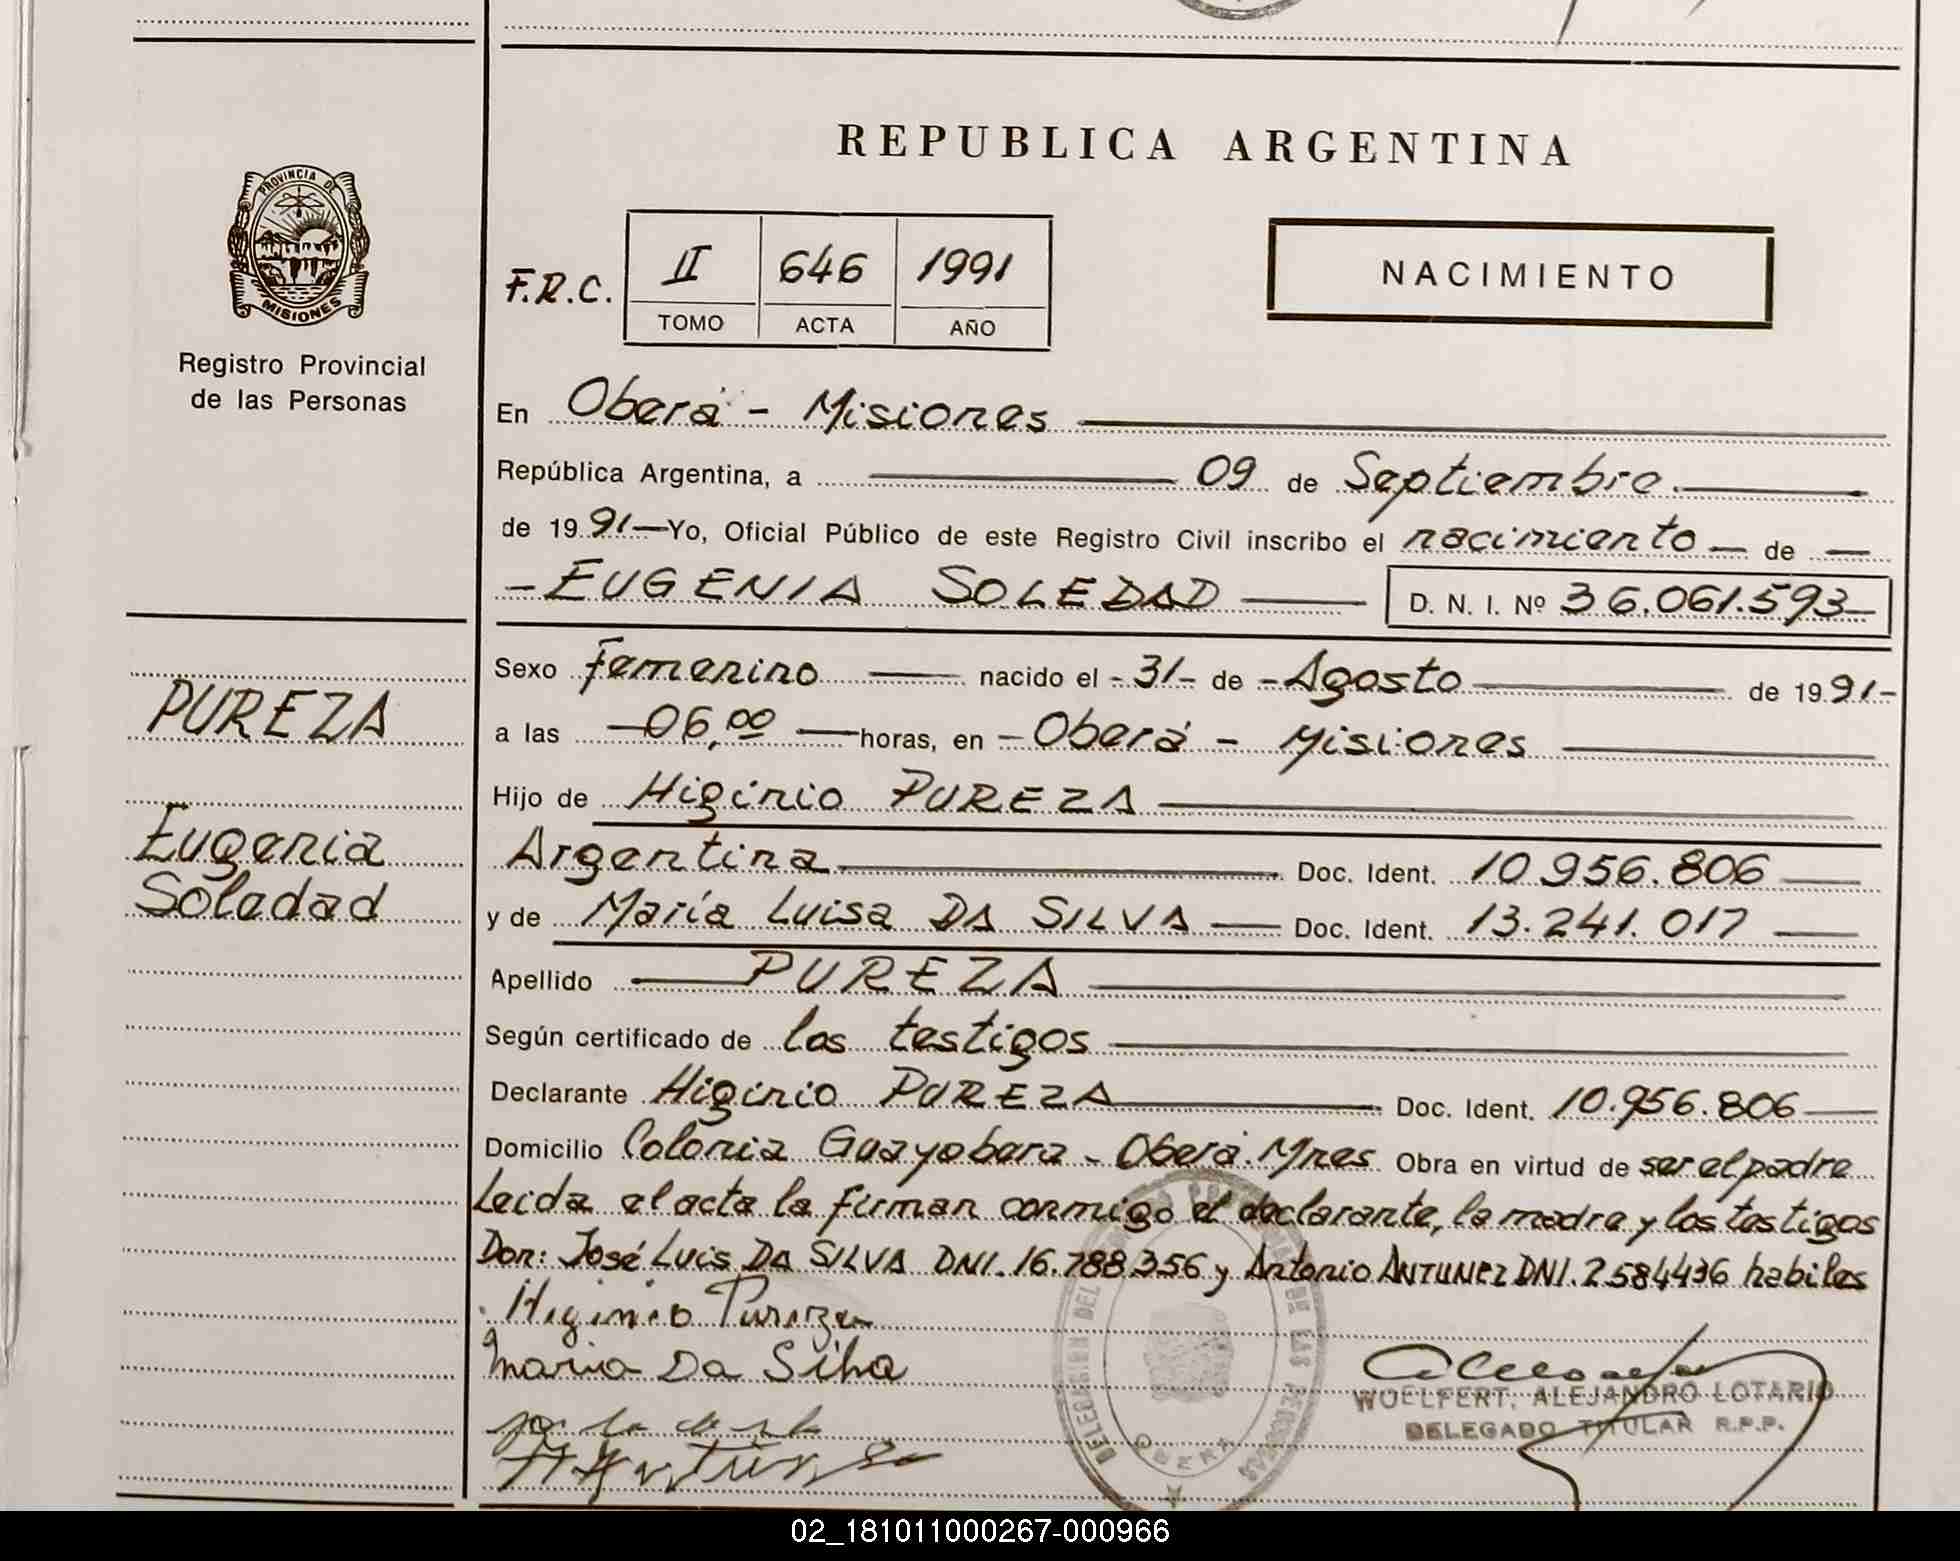 REPUBLICA ARGENTINA
PROVINCIA DE
MISIONES
Registro Provincial
de las Personas
F.R.C.
II 646 1991
TOMO ACTA AÑO
NACIMIENTO
En Oberá - Misiones
República Argentina, a 09 de Septiembre.
de 1991 - Yo, Oficial Público de este Registro Civil inscribo el nacimiento - de -
- EUGENIA SOLEDAD D. N. I. Nº 36.061.593 -
PUREZA
Eugenia
Soledad
Sexo Femenino nacido el - 31 - de - Agosto de 1991 -
a las - 06,00 - horas, en - Oberá - Misiones
Hijo de Higinio PUREZA
Argentina Doc. Ident. 10.956.806
y de María Luisa DA SILVA Doc. Ident. 13.241.017
Apellido PUREZA
Según certificado de los testigos
Declarante Higinio PUREZA Doc. Ident. 10.956.806
Domicilio Colonia Guayabera - Oberá. Mnes Obra en virtud de ser el padre
Leida el acta la firman conmigo el declarante, la madre y los testigos
Don: José Luis DA SILVA DNI. 16.788.356 y Antonio ANTUNEZ DNI. 2584436 habiles
Higinio Pureza
Maria Da Silva
WOELFERT, ALEJANDRO LOTARIO
DELEGADO TITULAR R.P.P.
OBERA
02_181011000267-000966